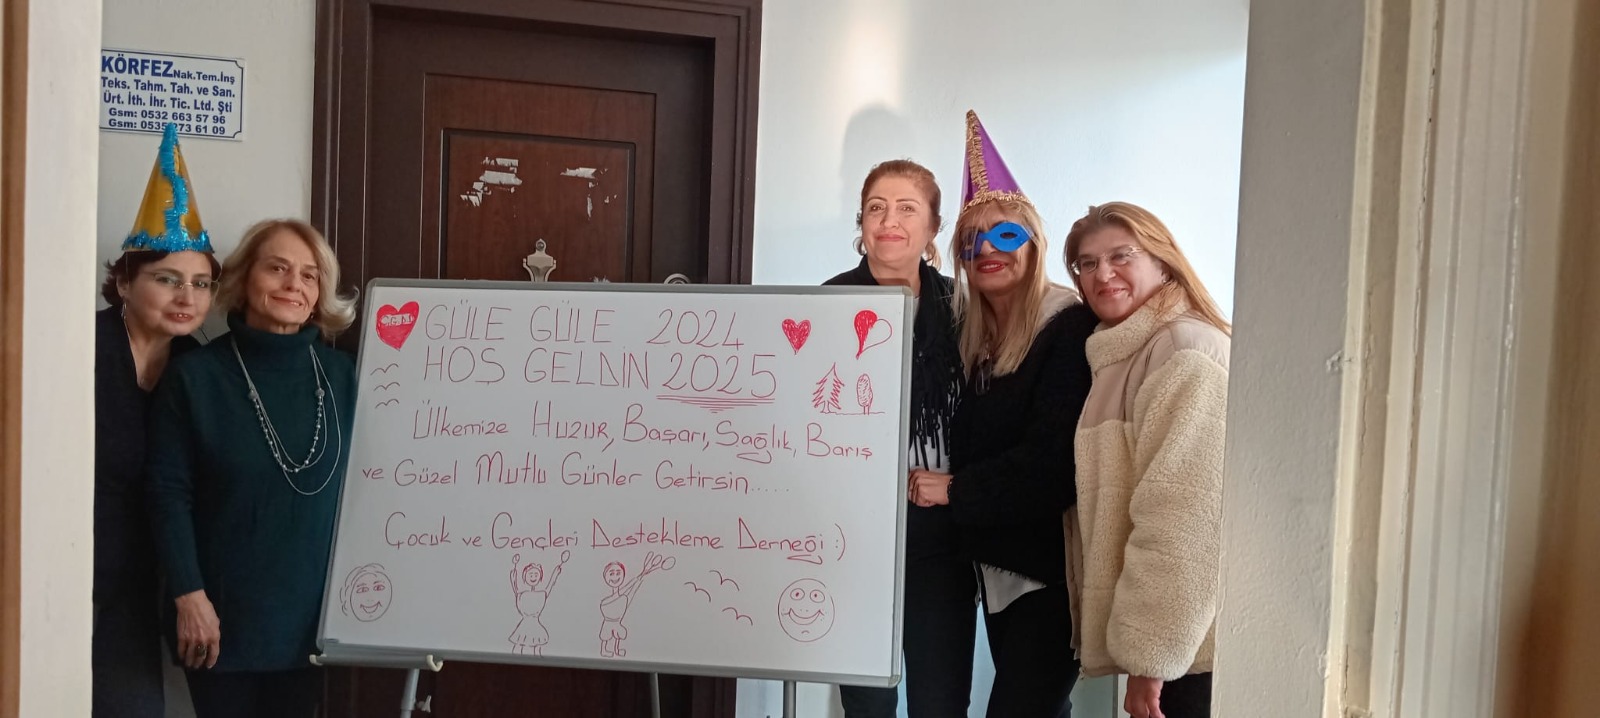 KÖRFEZ Nak.Tem.İnş
Teks. Tahm. Tah. ve San.
Ürt. İth. İhr. Tic. Ltd. Şti
Gsm: 0532 663 57 96
Gsm: 0535 273 61 09
GÜLE GÜLE 2024
HOŞ GELDİN 2025
Ülkemize Huzur, Başarı, Sağlık, Barış
ve Güzel Mutlu Günler Getirsin.....
Çocuk ve Gençleri Destekleme Derneği :)